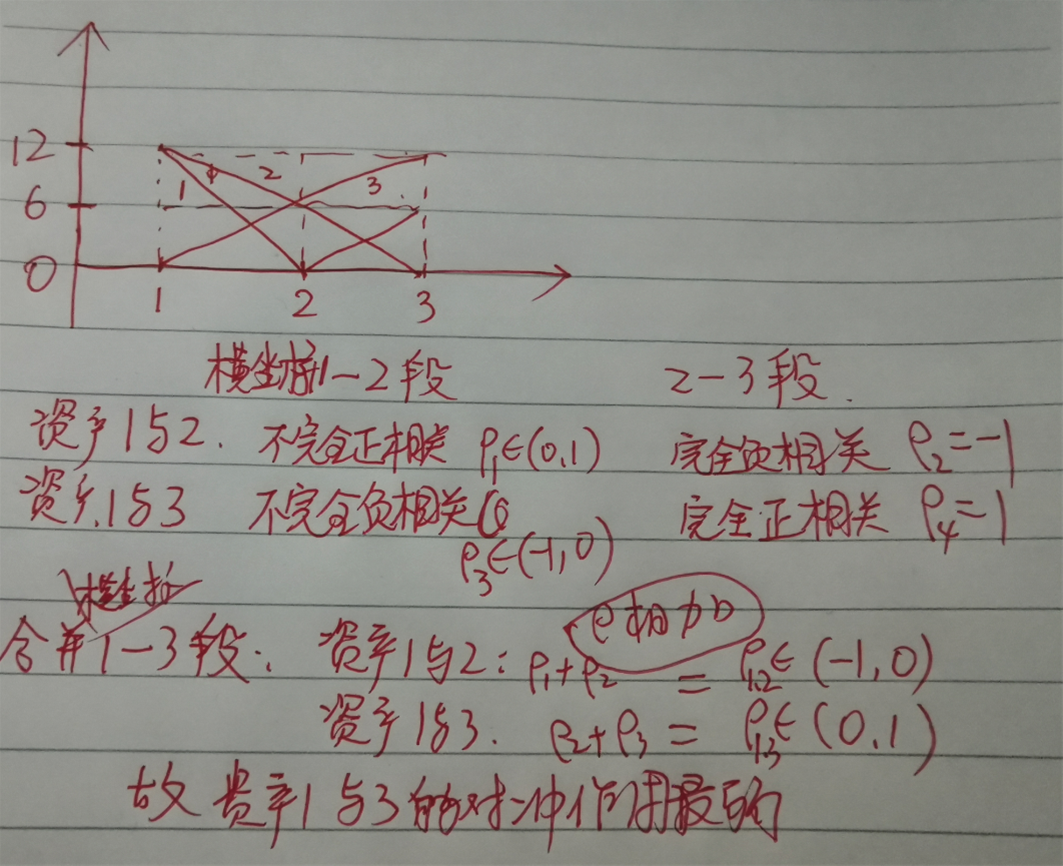 12
1 φ 2 3
6
0
1 2 3
横坐标1-2段 2-3段.
资产1与2. 不完全正相关 ρ₁∈(0,1) 完全负相关 ρ₂=-1
资产1与3 不完全负相关 完全正相关 ρ₄=1
ρ₃∈(-1,0)
横坐标
ρ相加
合并1-3段. 资产1与2: ρ₁+ρ₂ = ρ₁₂∈(-1,0)
资产1与3. ρ₂+ρ₃ = ρ₁₃∈(0,1)
故资产1与3的对冲作用最弱